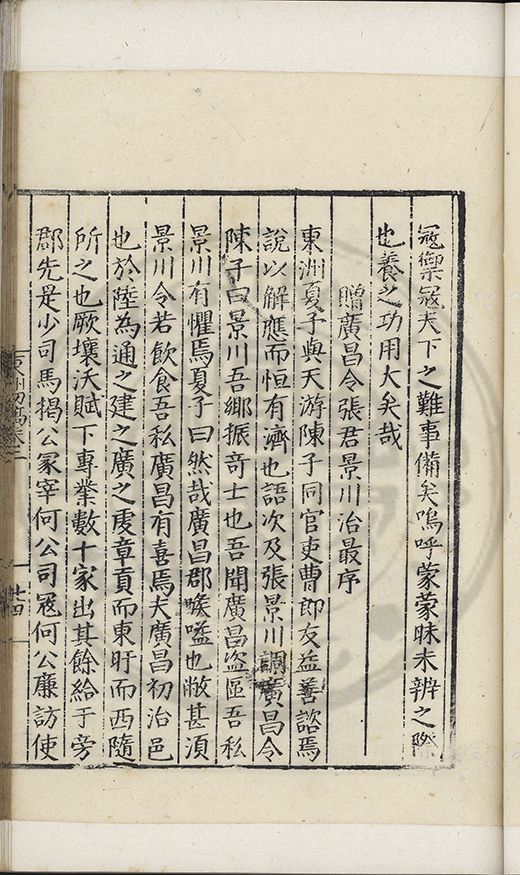 冦禦冦天下之難事備矣嗚呼蒙蒙昧未辨之際
也養之功用大矣哉
贈廣昌令張君景川治最序
東洲夏子與天游陳子同官吏曹即友益善諮焉
說以解應而恒有濟也語次及張景川調廣昌令
陳子曰景川吾鄉振竒士也吾聞廣昌盗區吾私
景川有懼焉夏子曰然哉廣昌郡喉嗌也敝甚湏
景川令若飲食吾私廣昌有喜焉夫廣昌初治邑
也於陸為通之建之廣之䖍章貢而東旴而西隨
所之也厥壤沃賦下專業數十家出其餘給于旁
郡先是少司馬揭公冡宰何公司冦何公廉訪使
東洲初稿卷三
廿四